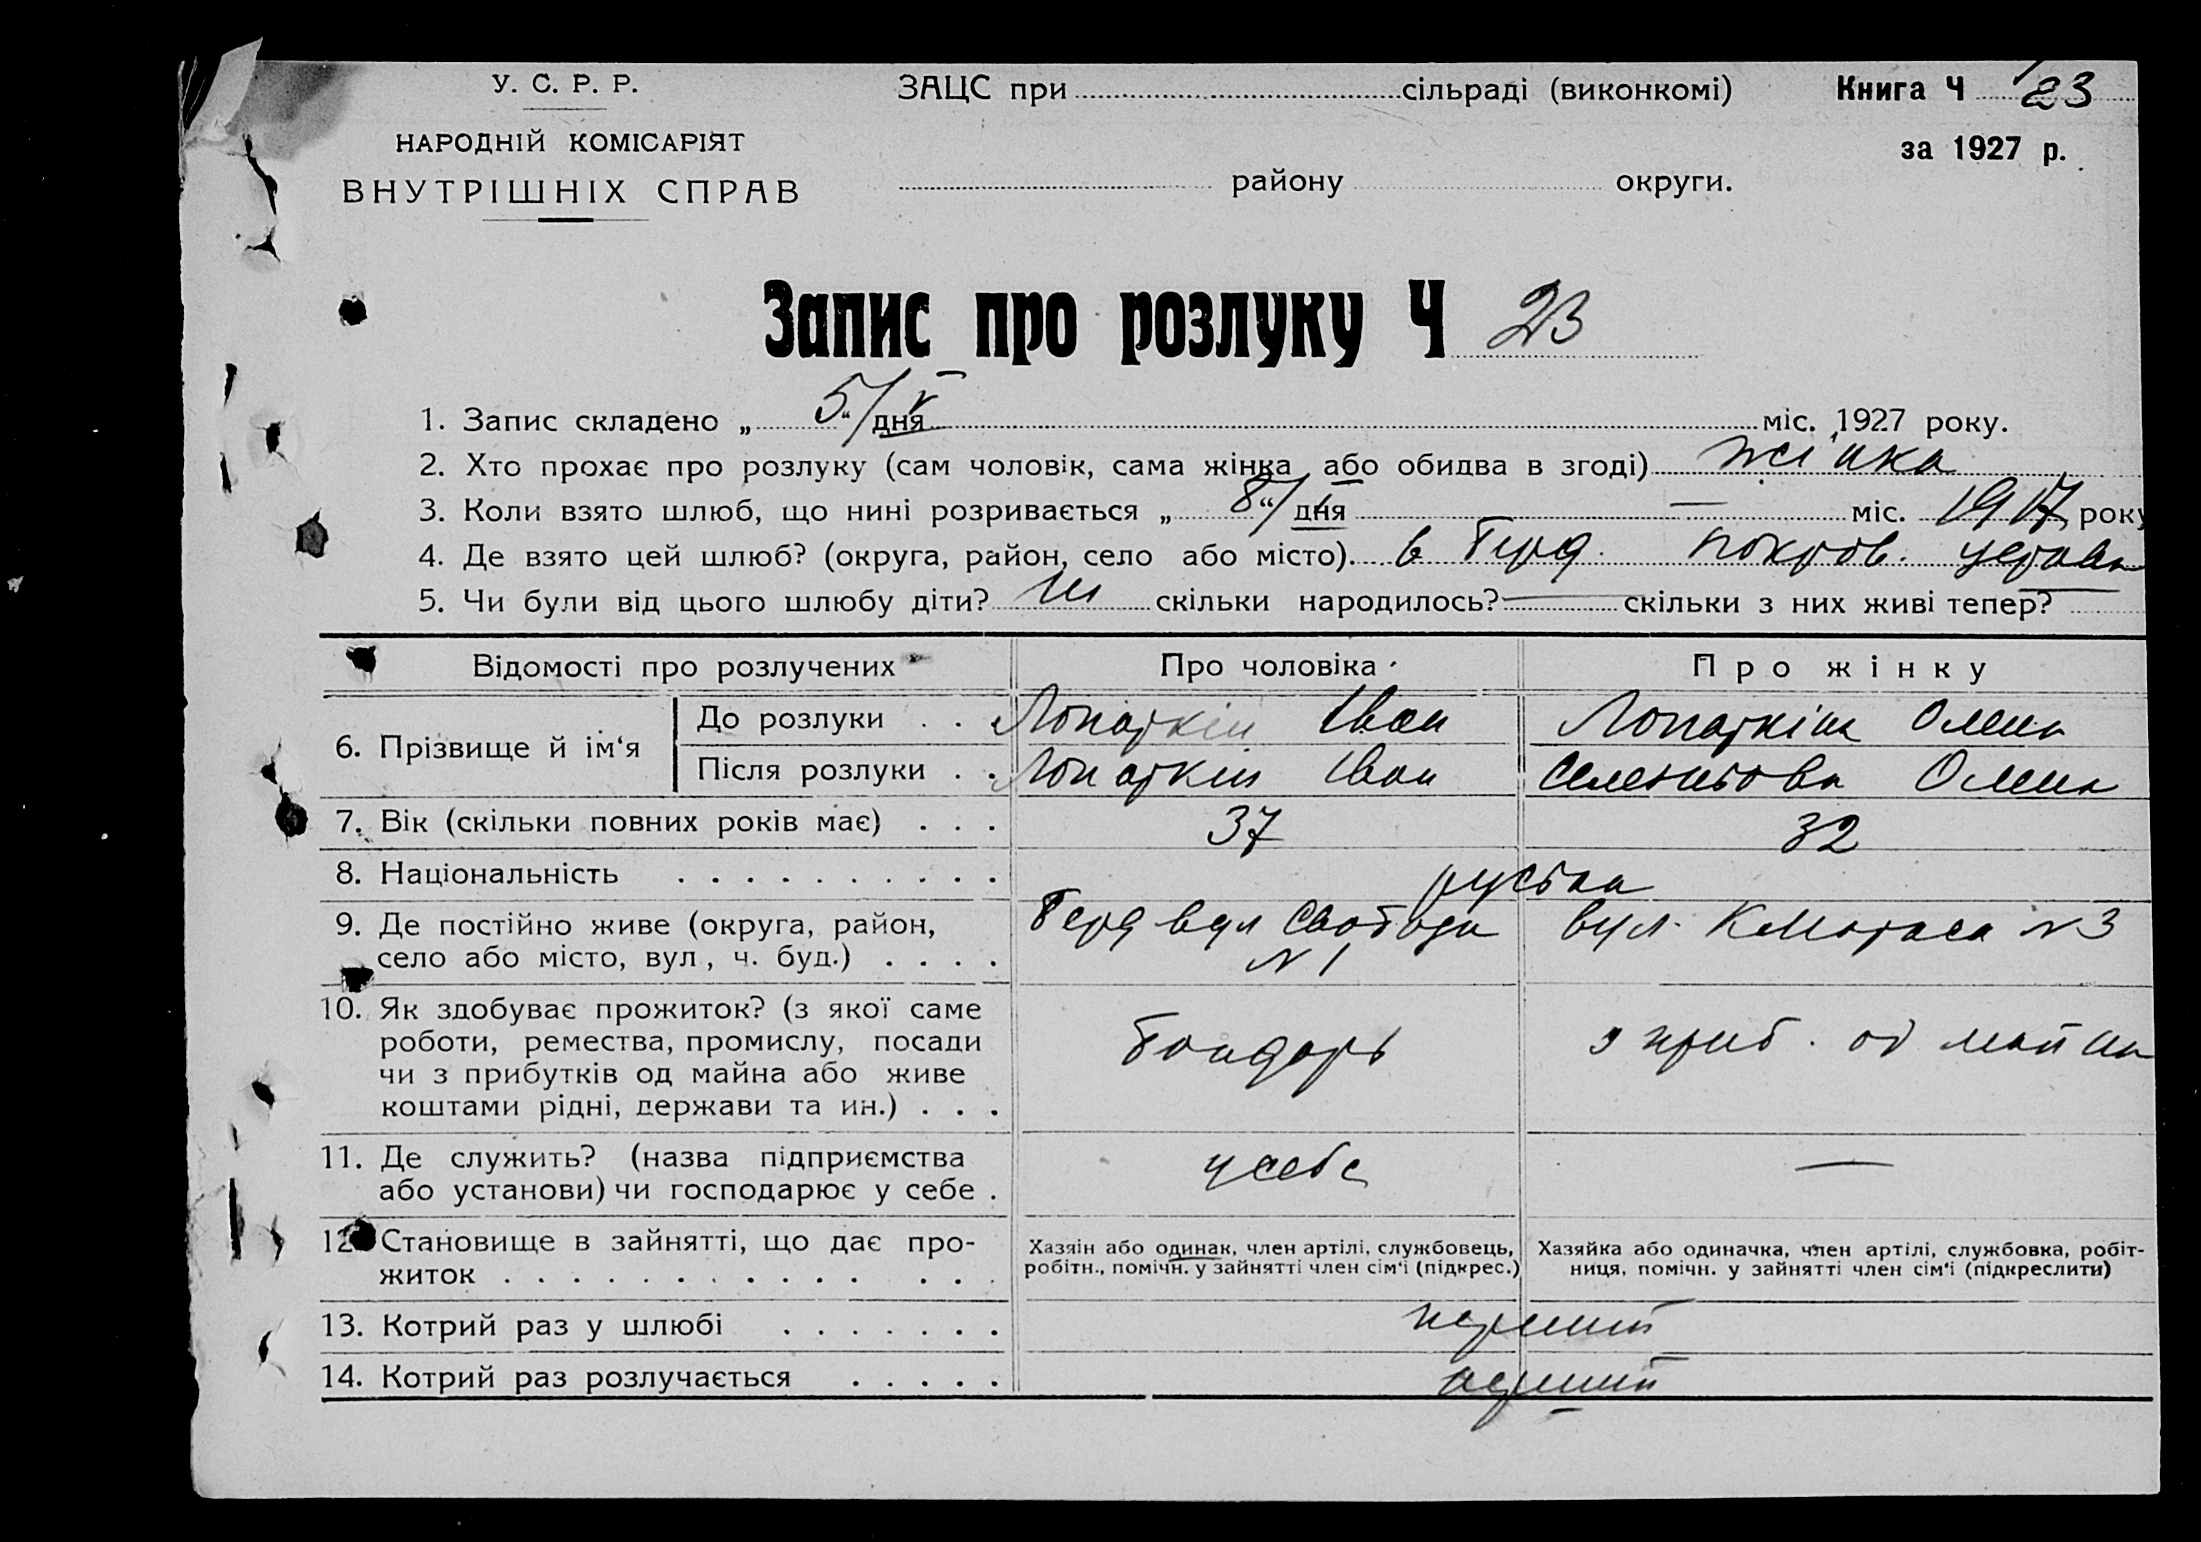 У. С. Р. Р.
НАРОДНІЙ КОМІСАРІЯТ
ВНУТРІШНІХ СПРАВ
ЗАЦС при сільраді (виконкомі)
району округи.
Книга Ч 23
за 1927 р.
Запис про розлуку Ч 23
1. Запис складено „ 5 “ / дня V міс. 1927 року.
2. Хто прохає про розлуку (сам чоловік, сама жінка або обидва в згоді) жінка
3. Коли взято шлюб, що нині розривається „ 8 “ / дня — міс. 1917 року
4. Де взято цей шлюб? (округа, район, село або місто) в Берд. покров. церкви
5. Чи були від цього шлюбу діти? ні скільки народилось? — скільки з них живі тепер? —
Відомості про розлучених Про чоловіка Про жінку
6. Прізвище й ім‘я
До розлуки . . Лопаткін Іван Лопаткіна Олена
Після розлуки . . Лопаткін Іван Олена
7. Вік (скільки повних років має) . . . 37 32
8. Національність . . . . . . . . . . руська
9. Де постійно живе (округа, район, Берд вул Свободи вул. К Маркса № 3
село або місто, вул , ч. буд.) . . . . № 1
10. Як здобуває прожиток? (з якої саме
роботи, ремества, промислу, посади бондарь з приб. од майна
чи з прибутків од майна або живе
коштами рідні, держави та ин.) . . .
11. Де служить? (назва підприємства у себе —
або установи) чи господарює у себе .
12. Становище в зайнятті, що дає про-
житок . . . . . . . . . . . . . . .
Хазяін або одинак, член артілі, службовець,
робітн., помічн. у зайнятті член сім‘ї (підкрес.)
Хазяйка або одиначка, член артілі, службовка, робіт-
ниця, помічн. у зайнятті член сім‘ї (підкреслити)
13. Котрий раз у шлюбі . . . . . . . перший
14. Котрий раз розлучається . . . . . перший